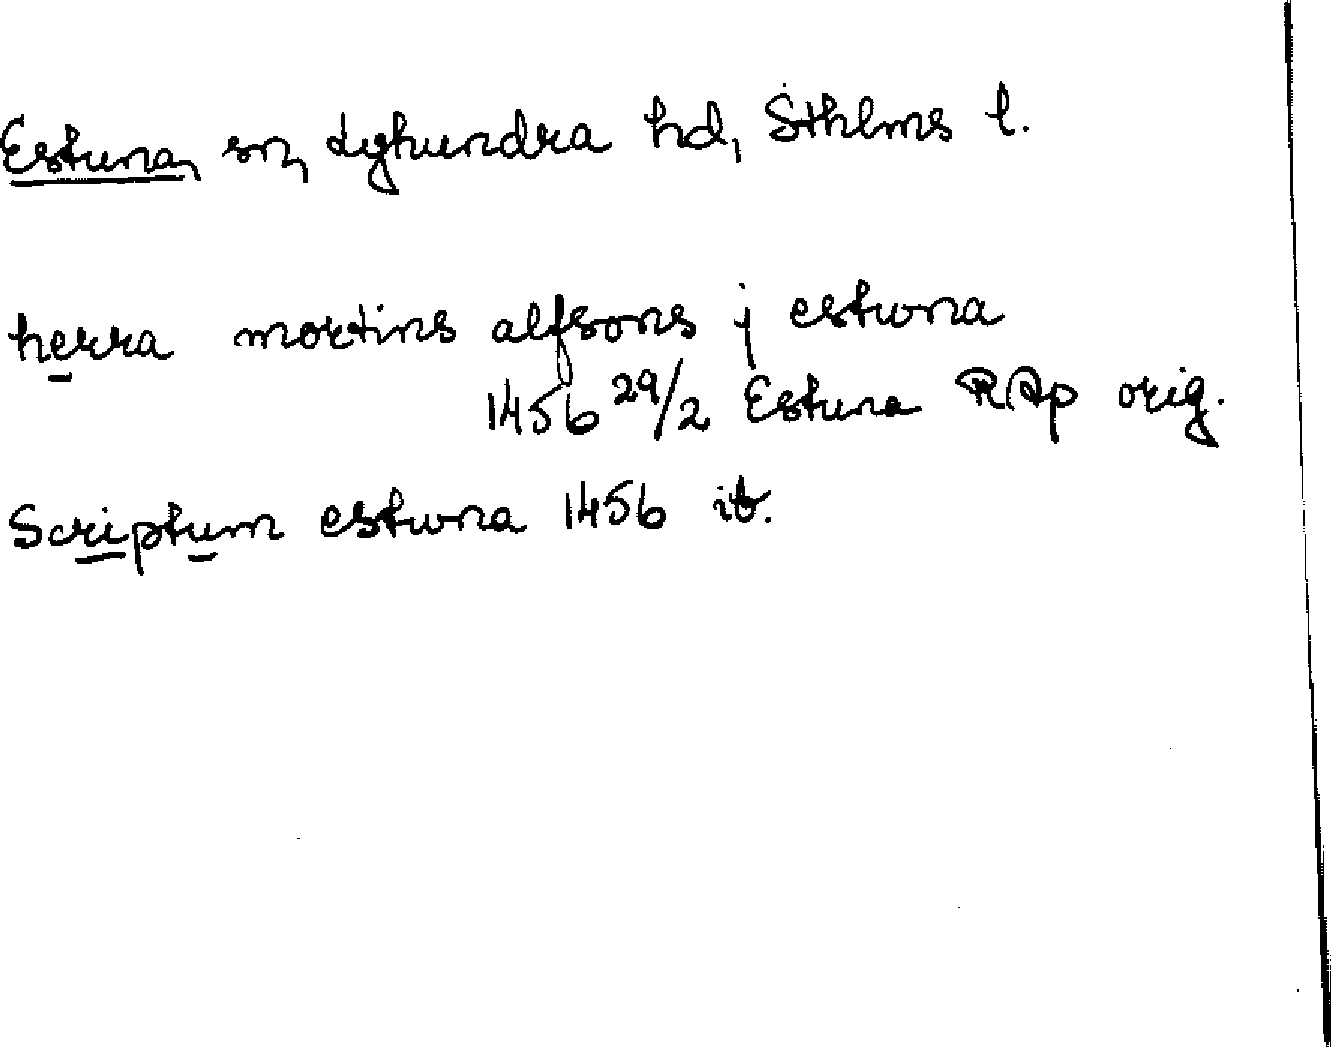 Estuna, sn, Lyhundra hd, Sthlms l.
herra mortins alfsons j estwna
1456 29/2 Estuna RAp orig.
Scriptum estwna 1456 ib.